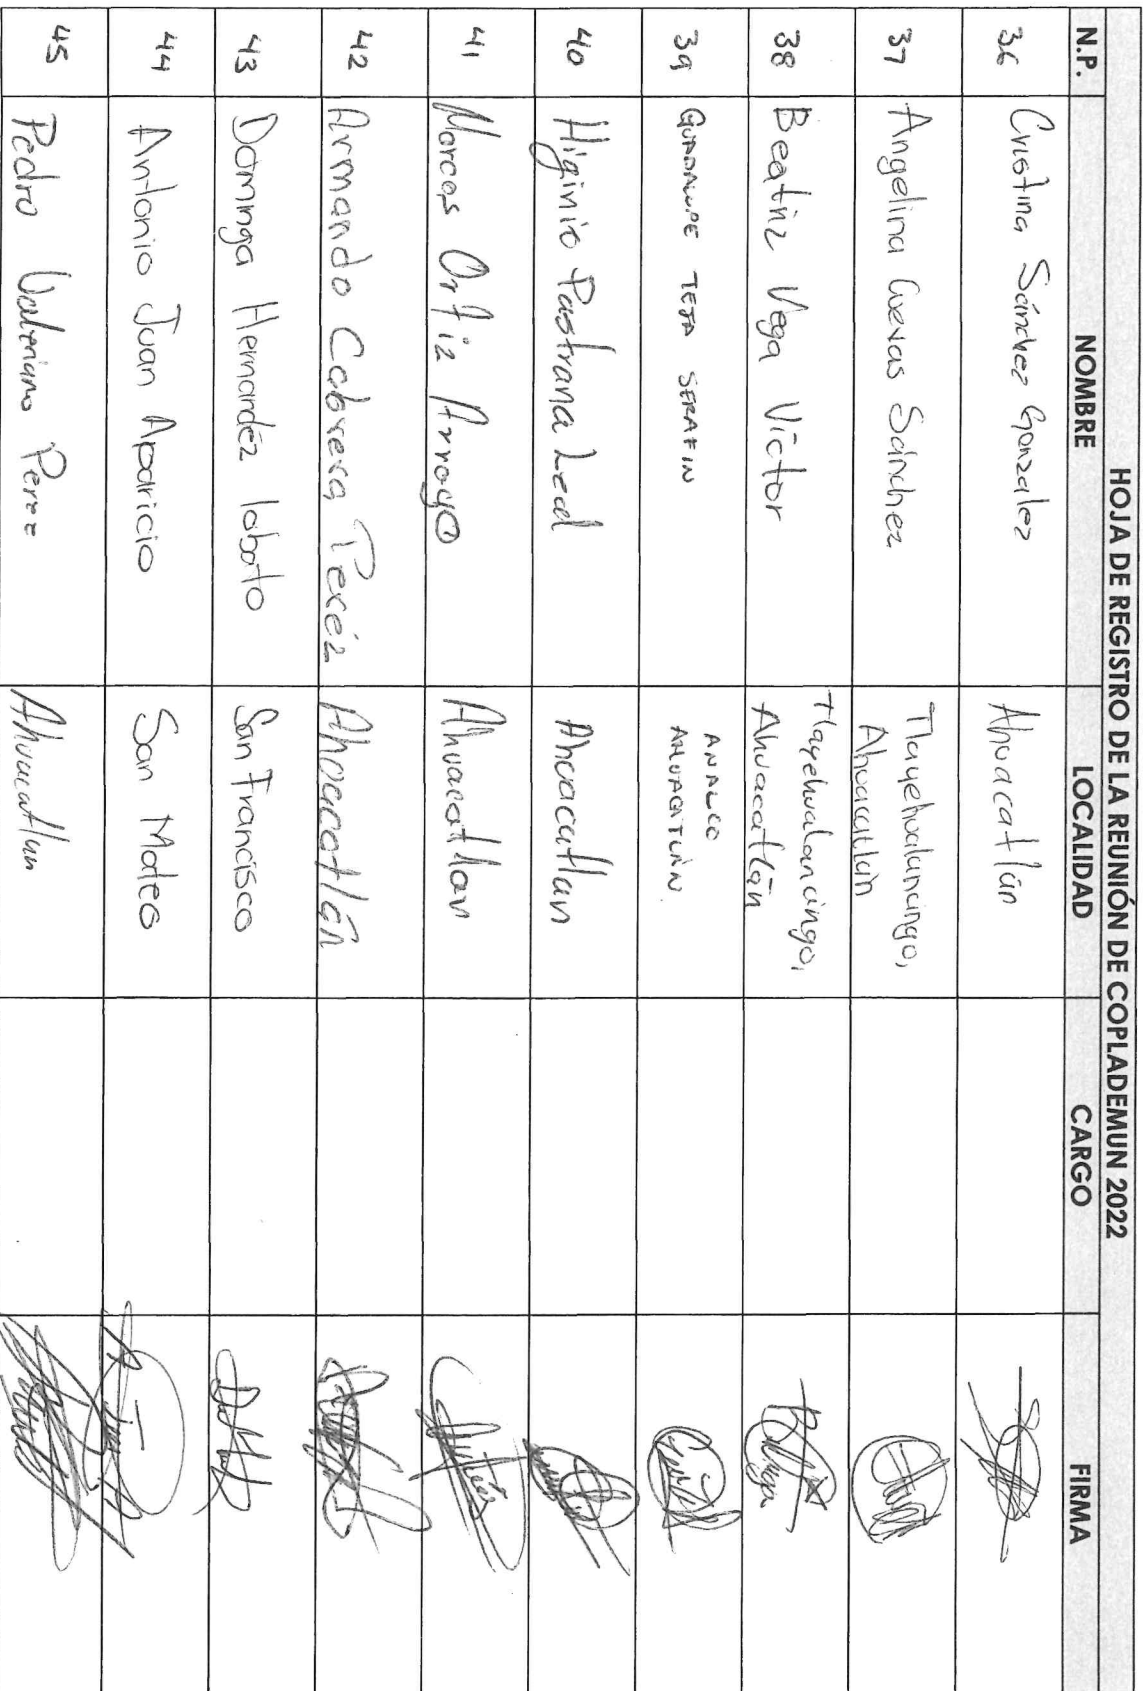 HOJA DE REGISTRO DE LA REUNIÓN DE COPLADEMUN 2022
N.P. NOMBRE LOCALIDAD CARGO FIRMA
36 Cristina Sánchez Gonzalez Ahuacatlán
37 Angelina Cuevas Sánchez Tlayehualancingo,
Ahuacatlán
38 Beatriz Vega Víctor Tlayehualancingo,
Ahuacatlán
39 GUADALUPE TEJA SERAFIN ANALCO
AHUACATLÁN
40 Higinio Pastrana Leal Ahuacatlan
41 Marcos Ortiz Arroyo Ahuacatlan
42 Armando Cabrera Peréz Ahuacatlán
43 Dominga Hernandéz lobato San Francisco
44 Antonio Juan Aparicio San Mateo
45 Pedro Valeriano Perez Ahuacatlan